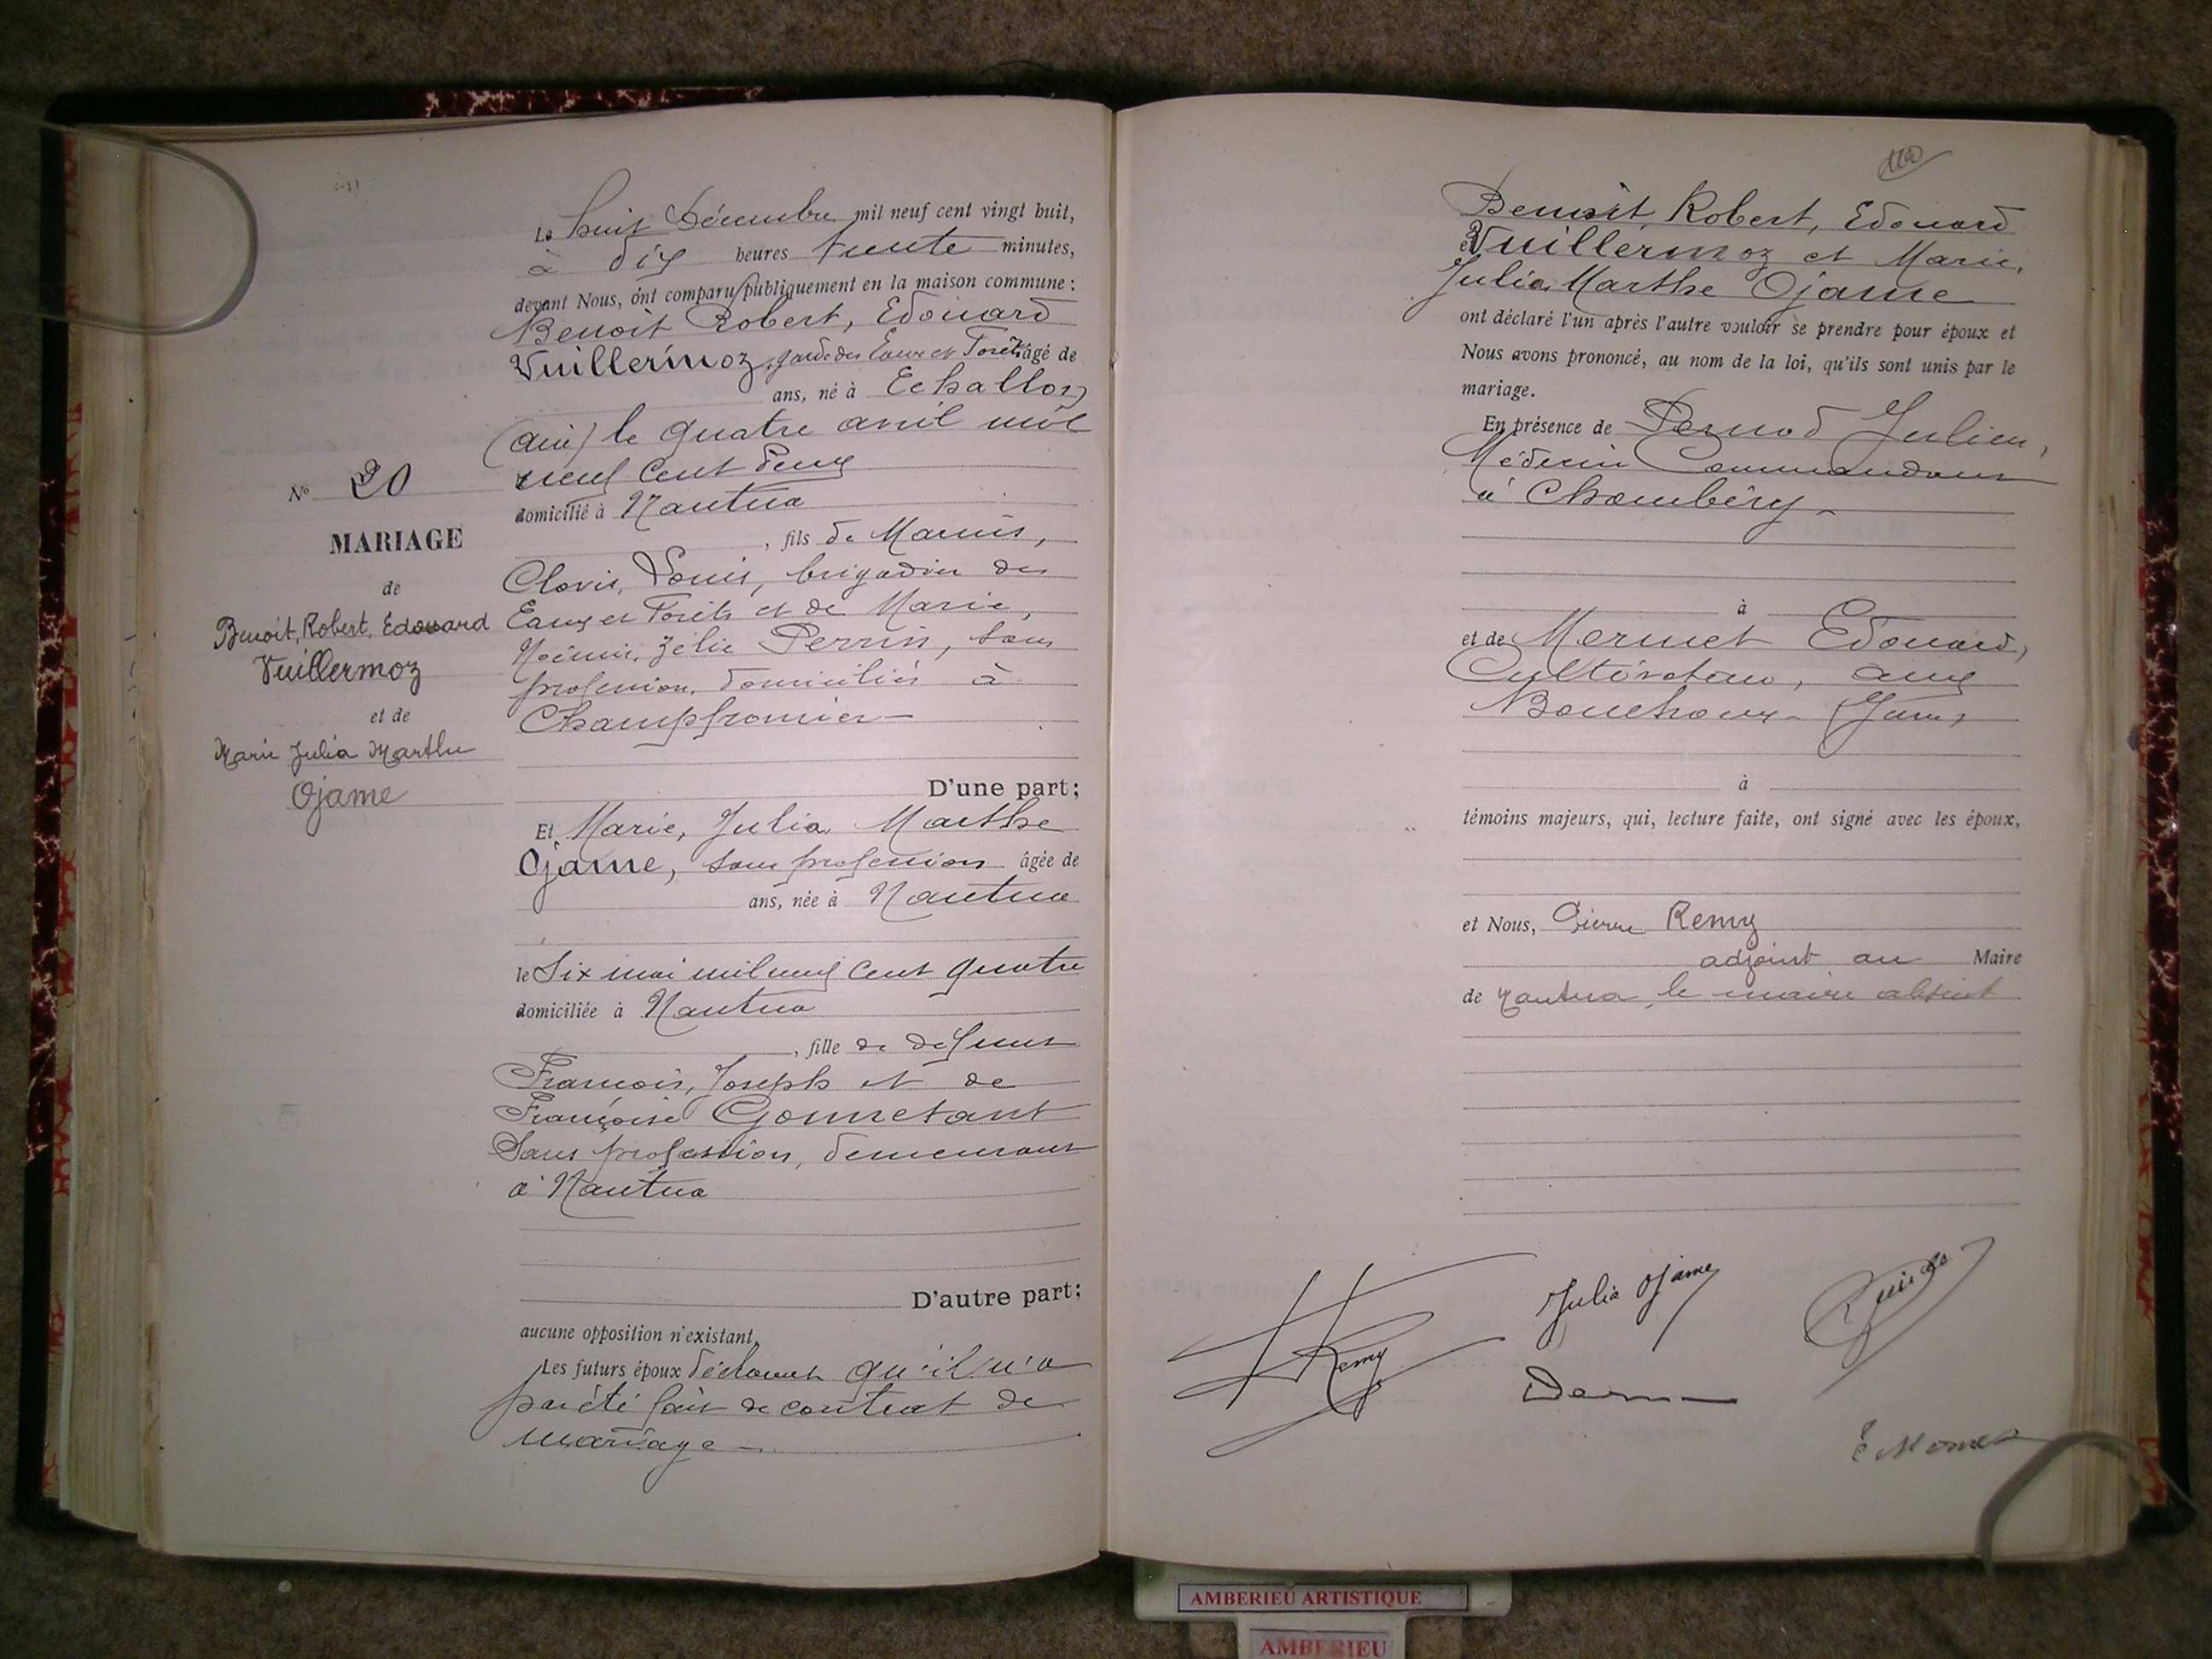 Le huit Décembre mil neuf cent vingt huit,
à dix heures trente minutes,
devant Nous, ont comparu publiquement en la maison commune :
Benoit Robert, Edouard
Vuillermoz, garde des Eaux et Forêts âgé de
ans, né à Echallon
(Ain) le quatre avril mil
neuf cent deux
domicilié à Nantua
, fils de Marius,
Clovis, Louis, brigadier des
Eaux et Forêts et de Marie,
Noémie, Zélie Perrin, sans
profession, domiciliés à
Champfromier
D'une part;
No 20
MARIAGE
de
Benoit, Robert, Edouard
Vuillermoz
et de
Marie Julia Marthe
Ojame
Et Marie, Julia, Marthe
Ojame, sans profession âgée de
ans, née à Nantua
le Six mai mil neuf cent quatre
domiciliée à Nantua
, fille de défunt
François, Joseph et de
Françoise Gonnetant
Sans profession, demeurant
à Nantua
D'autre part;
aucune opposition n'existant,
Les futurs époux déclarent qu'il n'a
pas été fait de contrat de
mariage
Benoit Robert, Edouard
Vuillermoz et Marie,
Julia, Marthe Ojame
ont déclaré l'un après l'autre vouloir se prendre pour époux et
Nous avons prononcé, au nom de la loi, qu'ils sont unis par le
mariage.
En présence de Pernod Julien,
Médecin Commandant
à Chambéry
à
et de Mermet Edouard,
Cultivateur, aux
Bouchoux (Jura)
à
témoins majeurs, qui, lecture faite, ont signé avec les époux,
et Nous, Pierre Remy
adjoint au Maire
de Nantua, le maire absent
Remy
Julia Ojame
E Mermet
AMBERIEU ARTISTIQUE
AMBERIEU